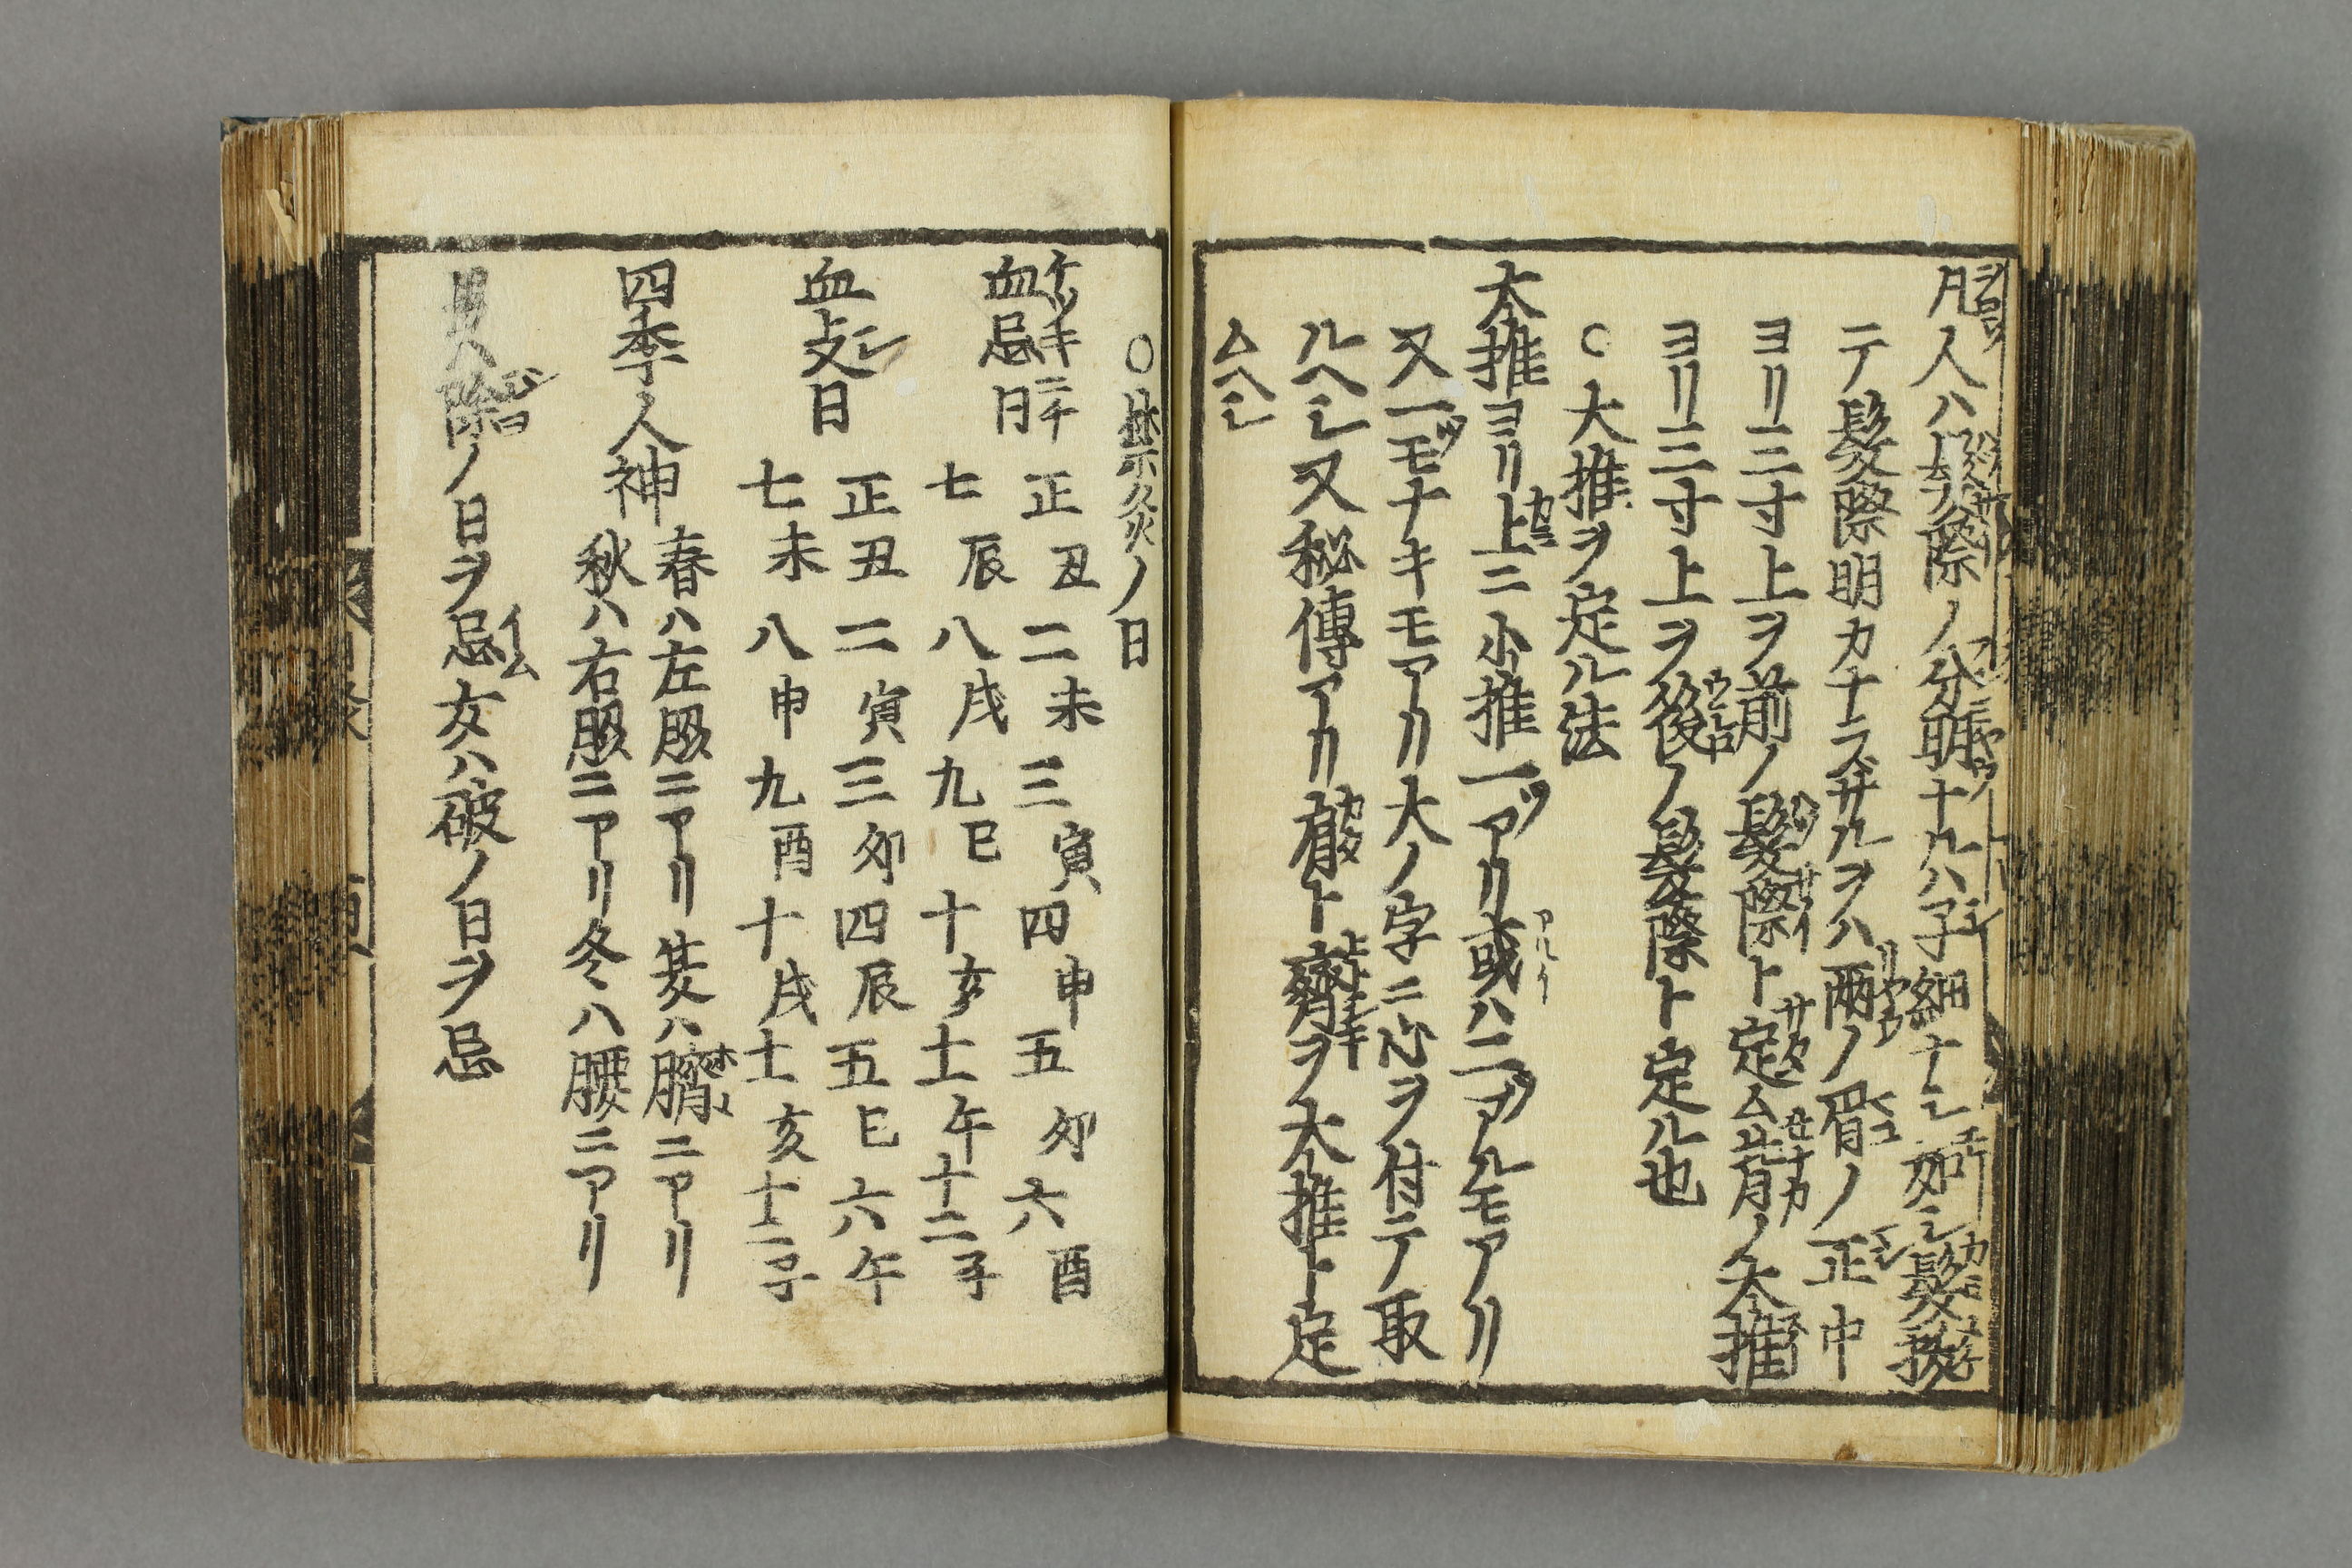 凡人ハ髮際ノ分明ナルハ子細ナシ如シ髮拔
テ髮際明カナラズザルヲハ兩ノ眉ノ正中
ヨリ三寸上ヲ前ノ髮際ト定ム背ノ大推
ヨリ三寸上ヲ後ノ髮際ト定ル也
○大推ヲ定ル法
大推ヨリ上ニ小推一ツアリ或ハ二ツアルモアリ
又一ツモナキモアリ大ノ字ニ心ヲ付テ取
ルヘシ又秘傳アリ肩ト齊ヲ大推ト定
ムヘシ
○禁灸ノ日
血忌日 正丑二未三寅四申五夘六酉
七辰八戌九巳十亥十一午十二子
血支日 正丑二寅三夘四辰五巳六午
七未八申九酉十戌十一亥十二子
四季ノ人神 春ハ左脇ニアリ夏ハ臍ニアリ
秋ハ右脇ニアリ冬ハ腰ニアリ
男ハ除ノ日ヲ忌女ハ破ノ日ヲ忌